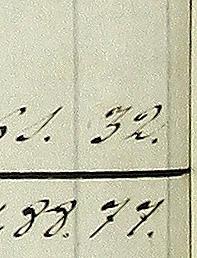 61. 32.
188. 77.